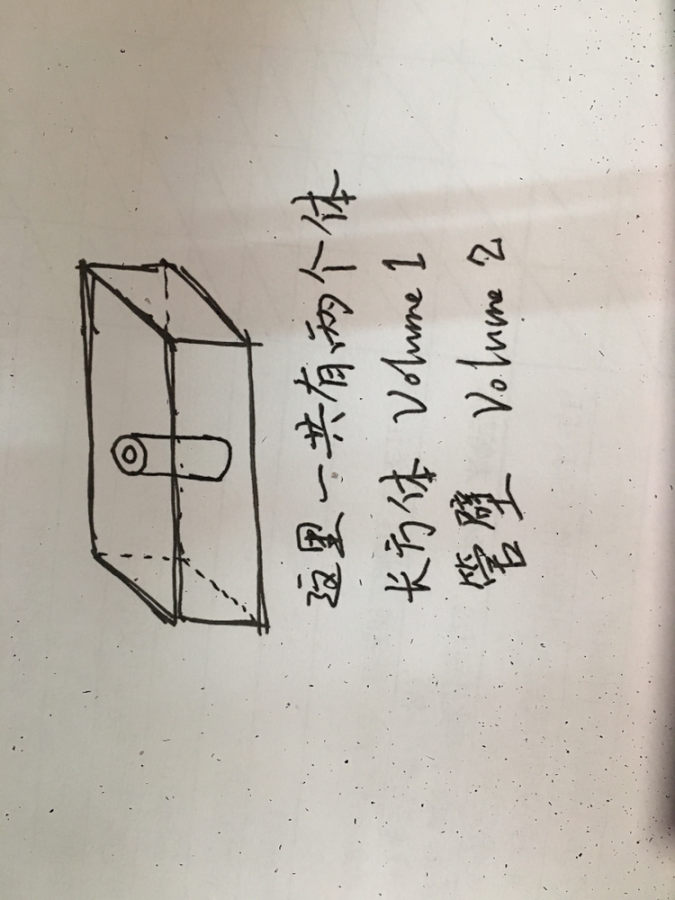 这里一共有两个体
长方体 Volume 1
管壁 Volume 2